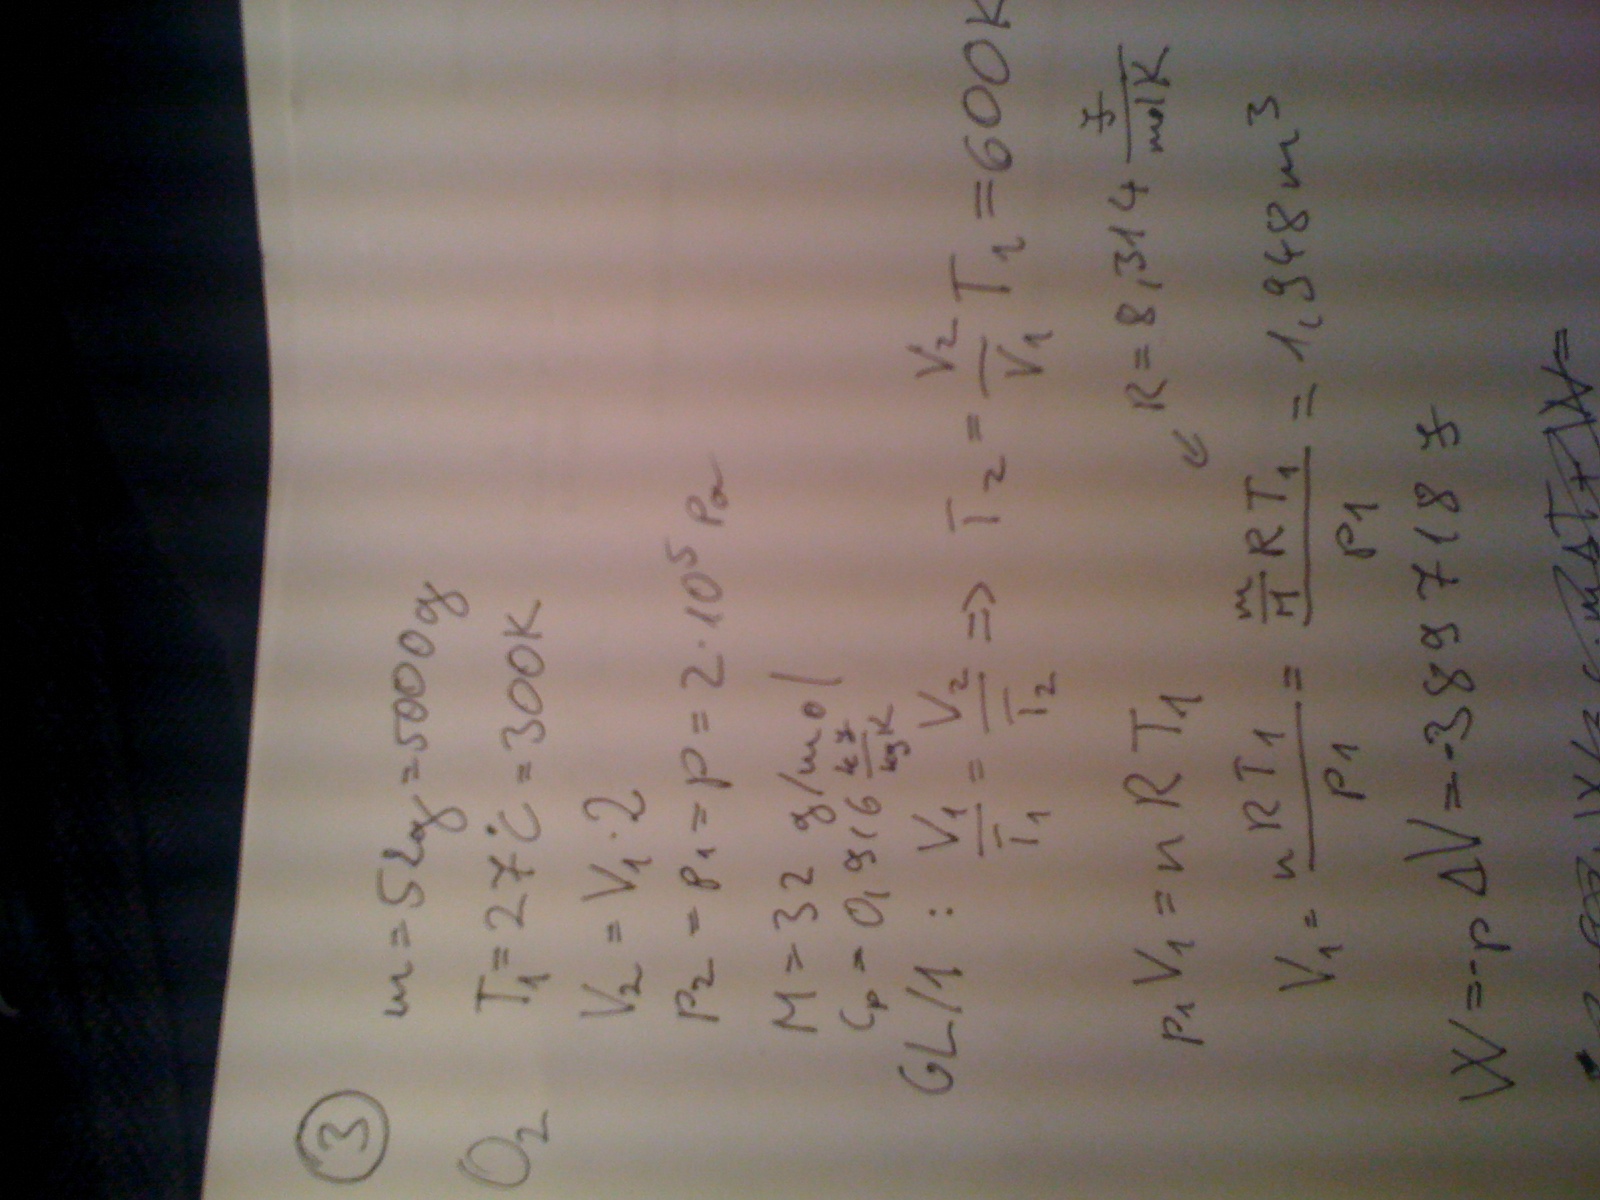 3
m = 5kg = 5000g
O₂
T₁ = 27°C = 300K
V₂ = V₁ · 2
p₂ = p₁ = p = 2·10⁵ Pa
M = 32 g/mol
Cp = 0,916 kJ/kgK
GL/1 : V₁/T₁ = V₂/T₂ => T₂ = V₂/V₁ T₁ = 600K
R = 8,314 J/molK
p₁V₁ = n R T₁
↙
V₁ = n R T₁/p₁ = m/M R T₁/p₁ = 1,948 m³
W = -p ΔV = -389718 J